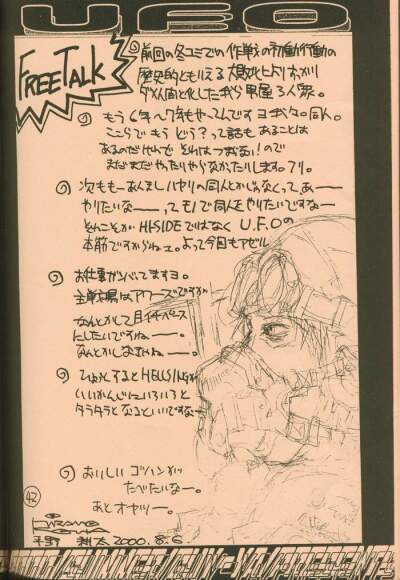 UFO
FREE TALK
前回の冬コミでの作戦の初動行動の
歴史的ともいえる大敗北により すっかり
ダメ人間と化した 我ら 男屋 3人衆。
もう 6年〜7年もやってんです ヨ ギタ。同人。
ここらで もう どう？って話も あることは
あるのだけんど それはつまらない！ので
まだまだやったりやらなかったりします。アリ。
次ももーあんまし ハヤリの同人とかじゃなくって あ——
やりたいな——。ってモノで同人をやりたいですな—
それこそが HI-SIDEではなく U.F.Oの
本筋ですからねェ。よって今回もアゼル
お仕事ガンバってますヨ。
主戦場はアワーズですが
なんとかして月イチペース
にしたいですね——。
なんとかしなきゃね——。
ひょっとするとHELLSINGが
いいかんじにいろいろと
タラタラと なるといいですな—
おいしい ゴハンが
たべたいなー。
あと オヤツー。
42
平野 耕太 2000. 8. 6